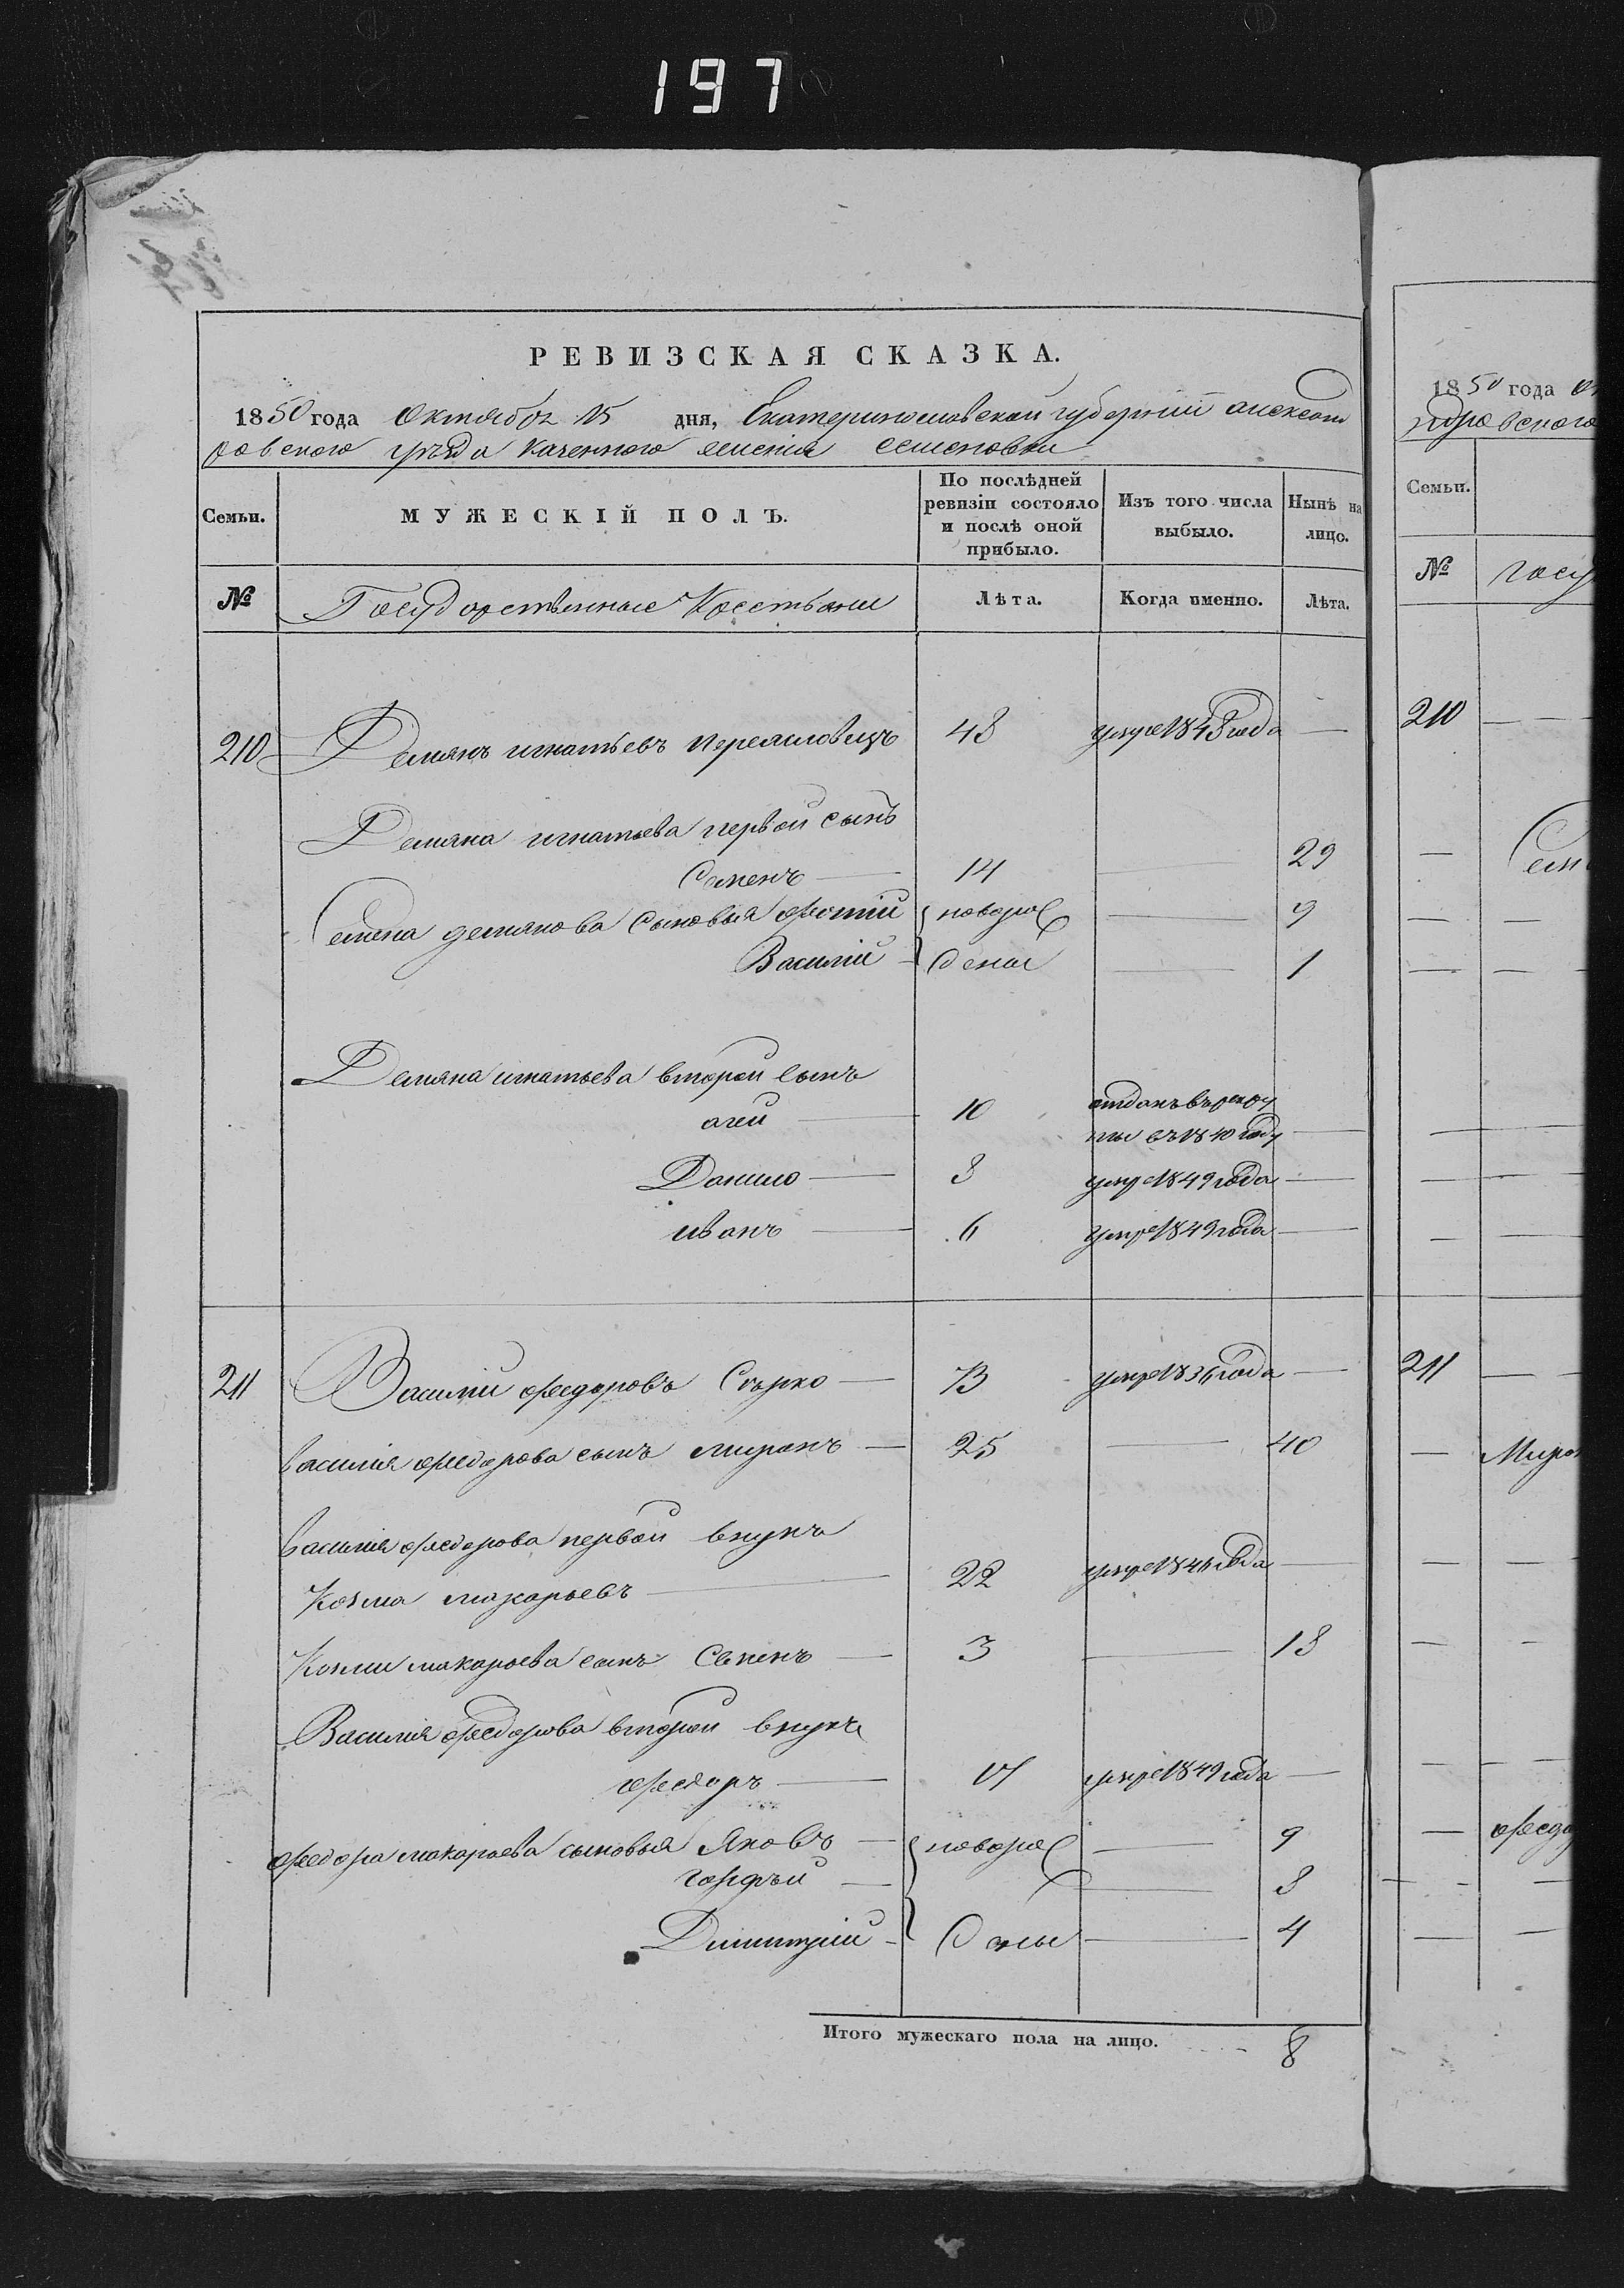 197
РЕВИЗСКАЯ СКАЗКА.
1850 года Октября 15 дня, Екатеринославской губернии александ
ровского уезда казенного селения семеновки
Семьи.
МУЖЕСКІЙ ПОЛЪ.
По послѣдней ревизіи состояло и послѣ оной прибыло.
Изъ того числа выбыло.
Нынѣ на лицо.
№ Государственные Крестьяни Лѣта. Когда именно. Лѣта.
210 Демянъ игнатьевъ переясловецъ 48 умре 1848 года —
Демяна игнатьева первой сынъ
Семенъ — 14 — 29
Семена демянова сыновья фотій } новорож — 9
Василій } деные — 1
Демяна игнатьева второй сынъ
агей — 10 отданъ въ рекру
ты въ 1840 году —
Данило — 8 умре 1849 года —
иванъ — 6 умре 1849 года —
211 Василий федоровъ Сѣрко — 73 умре 1836 года —
василия федорова сынъ миронъ — 25 — 40
василия федорова первой внукъ
Козма макарьевъ — 22 умре 1846 года —
Козми макарьева сынъ Семенъ — 3 — 18
Василия федорова второй внукъ
федоръ — 17 умре 1849 года —
федора макарьева сыновья Яковъ — } новорож — 9
гордѣй — — 8
Димитрій — } деные — 4
Итого мужескаго пола на лицо. 8
1850 года
ровского
Семьи.
№ госу
210
211
Миро
федо